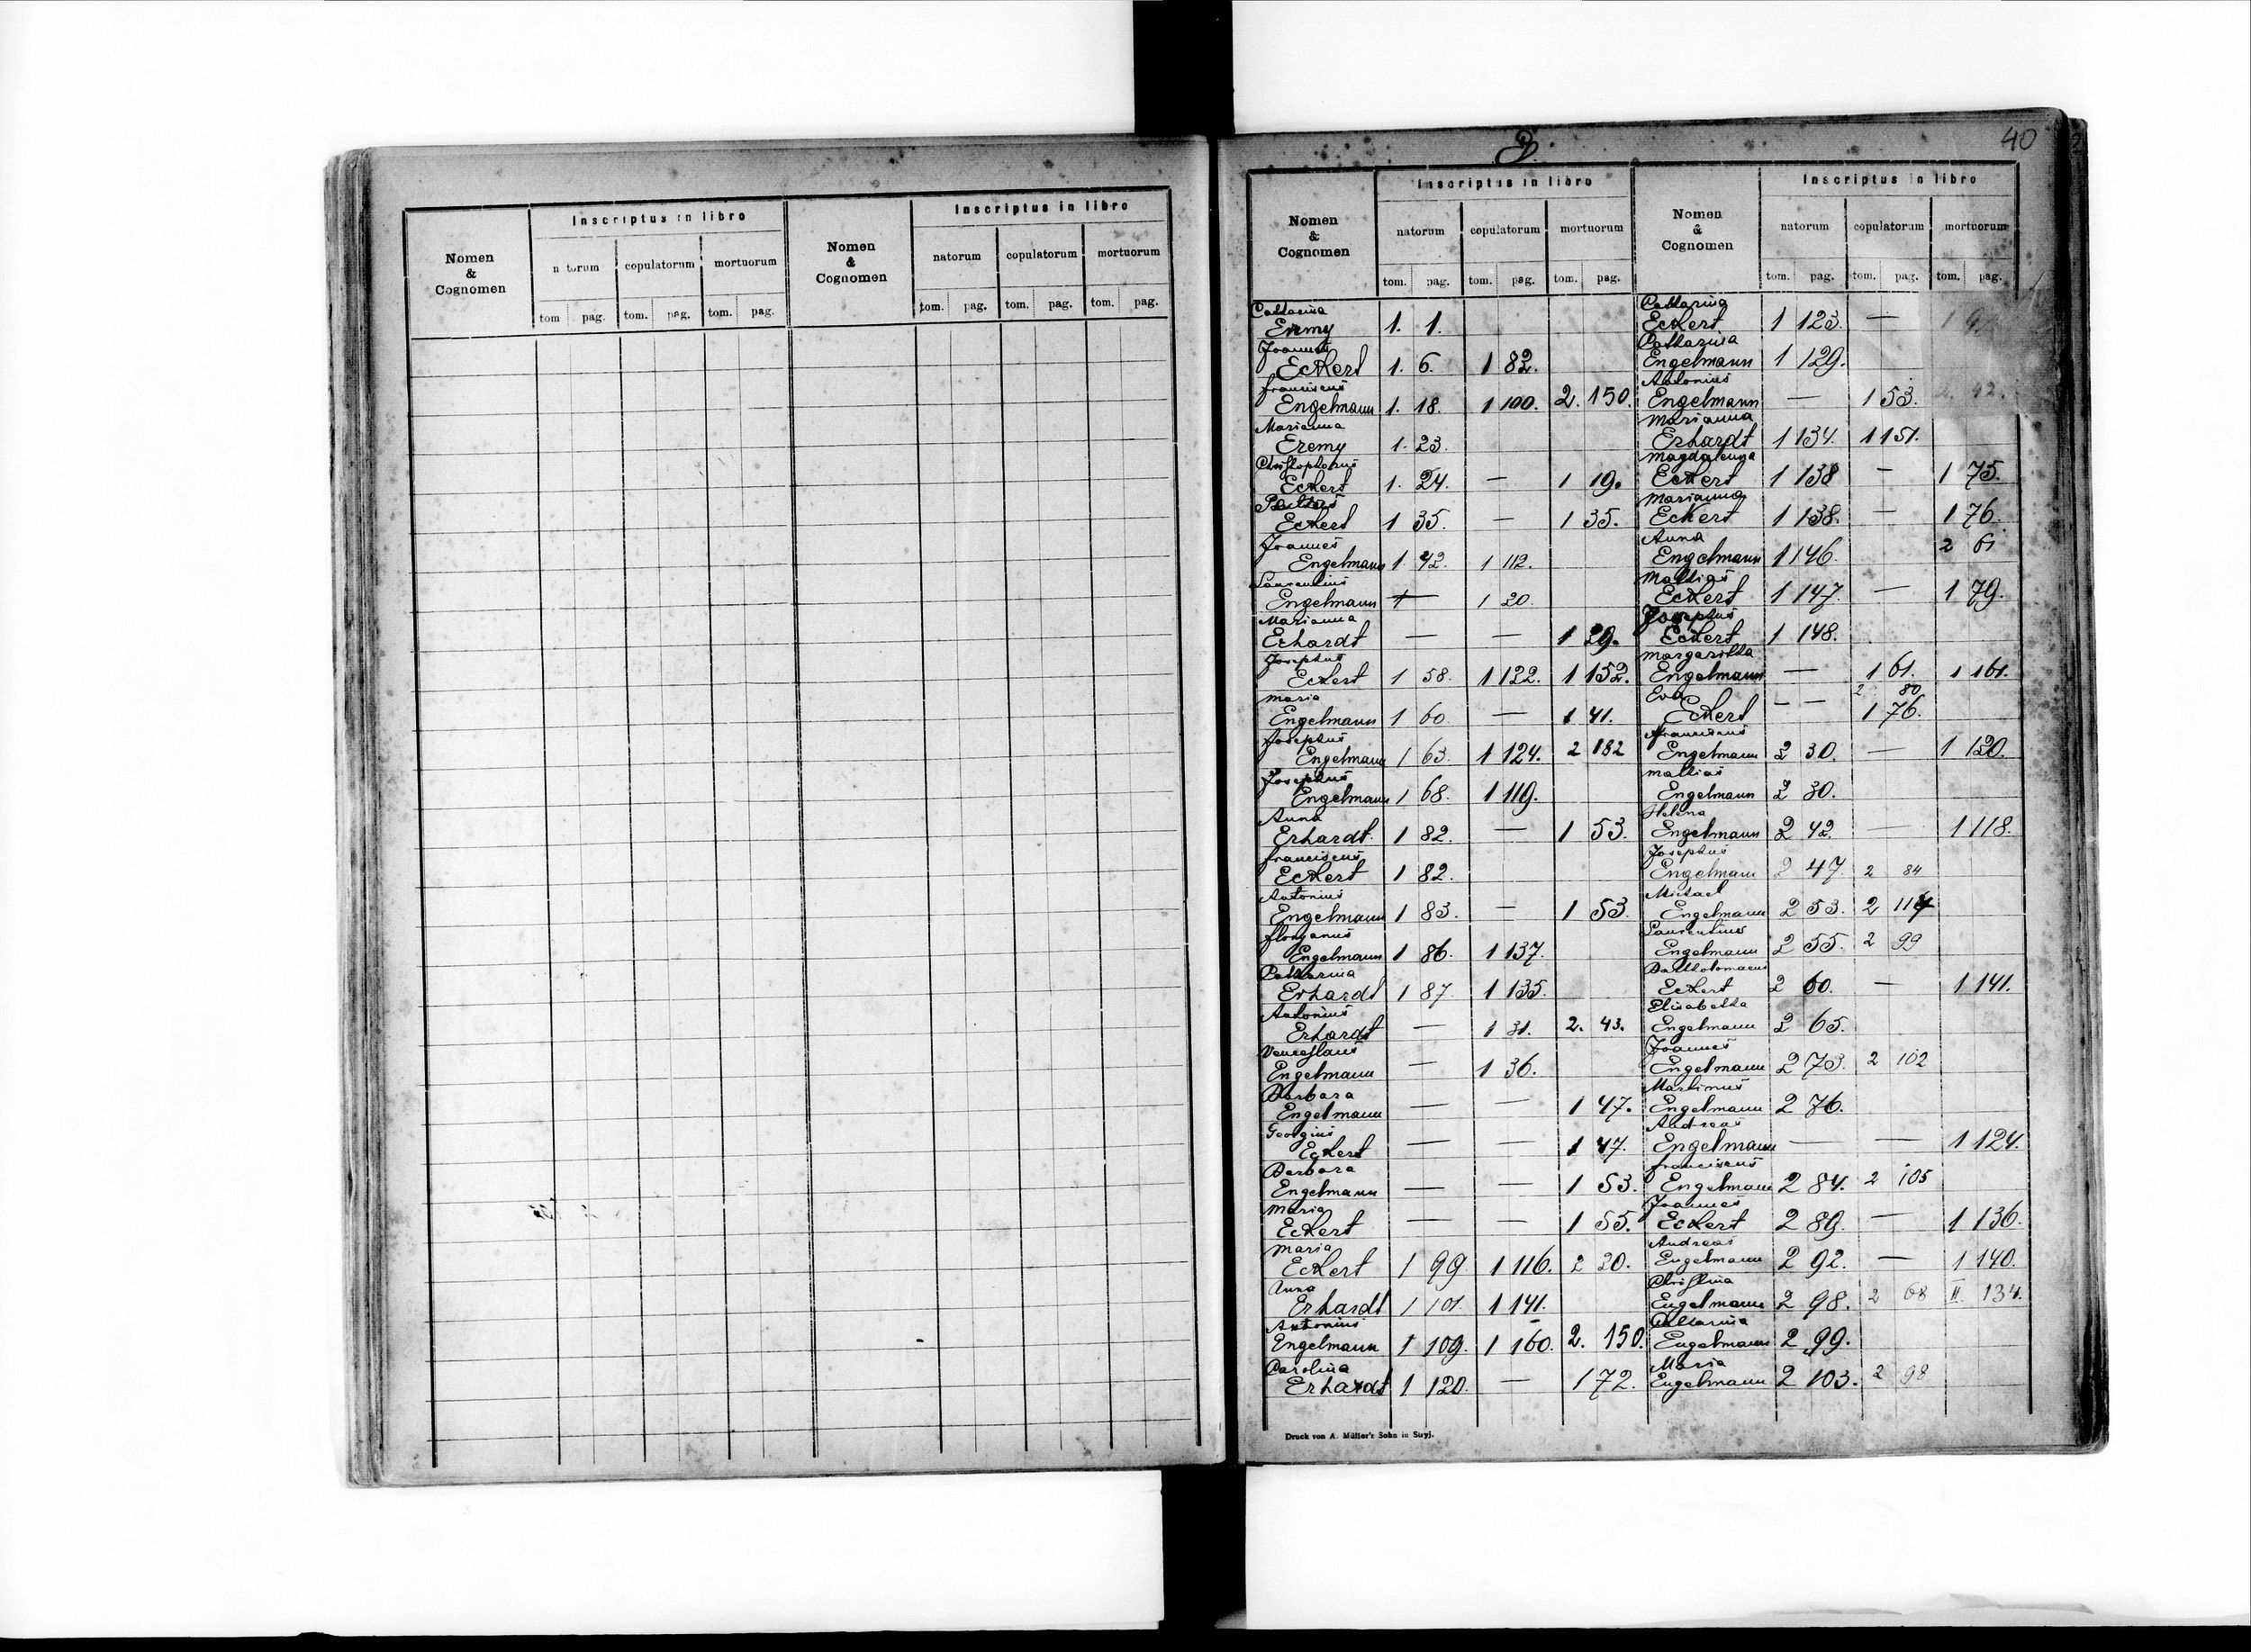 Inscriptus in libro
Inscriptus in libro
Nomen & Cognomen
n torum copulatorum mortuorum
Nomen & Cognomen
natorum copulatorum mortuorum
tom pag. tom. pag. tom. pag.
tom. pag. tom. pag. tom. pag.
40
Inscriptus in libro
Inscriptus in libro
Nomen & Cognomen
natorum copulatorum mortuorum
Nomen & Cognomen
natorum copulatorum mortuorum
tom. pag. tom. pag. tom. pag.
tom. pag. tom. pag. tom. pag.
Catharina
Eremy 1. 1.
Joannes
Eckert 1. 6. 1 82.
franciscus
Engelmann 1. 18. 1 100. 2. 150.
Marianna
Eremy 1. 23.
Christophorus
Eckert 1. 24. — 1 19.
Eckert 1 35. — 1 35.
Joannes
Engelmann 1. 42. 1 112.
Laurentius
Engelmann — 1 20.
Marianna
Erhardt — — 1 29.
Josephus
Eckert 1 58. 1 122. 1 152.
Maria
Engelmann 1 60 — 1 41.
Josephus
Engelmann 1 63. 1 124. 2 182
Josephus
Engelmann 1 68. 1 119.
Anna
Erhardt 1 82. — 1 53.
franciscus
Eckert 1 82.
Antonius
Engelmann 1 83. — 1 53.
floryanus
Engelmann 1 86. 1 137.
Catharina
Erhardt 1 87. 1 135.
Antonius
Erhardt — 1 31. 2. 43.
Venceslaus
Engelmann — 1 36.
Barbara
Engelmann — — 1 47.
Georgius
Eckert — — 1 47.
Barbara
Engelmann — — 1 53.
Maria
Eckert — — 1 55.
Maria
Eckert 1 99. 1 116. 2 20.
Anna
Erhardt 1 101. 1 141.
Antonius
Engelmann 1 109. 1 160. 2. 150.
Carolina
Erhardt 1 120. — 1 72.
Catharina
Eckert 1 123. —
Catharina
Engelmann 1 129.
Antonius
Engelmann — 1 53.
Marianna
Erhardt 1 134. 1 151.
Magdalenna
Eckert 1 138 — 1 75.
Marianna
Eckert 1 138. — 1 76.
Anna
Engelmann 1 146. 2 61
Mathias
Eckert 1 147. — 1 79.
Josephus
Eckert 1 148.
Margaritha
Engelmann — 1 61. 1 161.
Eva 2 80
Eckert — — 1 76.
franciscus
Engelmann 2 30. — 1 120.
Mathias
Engelmann 2 30.
Helena
Engelmann 2 42. — 1 118.
Josephus
Engelmann 2 47. 2 84
Michael
Engelmann 2 53. 2 114
Laurentius
Engelmann 2 55. 2 99
Bartholomaeus
Eckert 2 60. — 1 141.
Elisabetha
Engelmann 2 65.
Joannes
Engelmann 2 73. 2 102
Martinus
Engelmann 2 76.
Andreas
Engelmann — — 1 124.
franciscus
Engelmann 2 84. 2 105
Joannes
Eckert 2 89. — 1 136.
Andreas
Engelmann 2 92. — 1 140.
Christina
Engelmann 2 98. 2 68 II. 134.
Catharina
Engelmann 2 99.
Maria
Engelmann 2 103. 2 98
Druck von A. Müller's Sohn in Stryj.